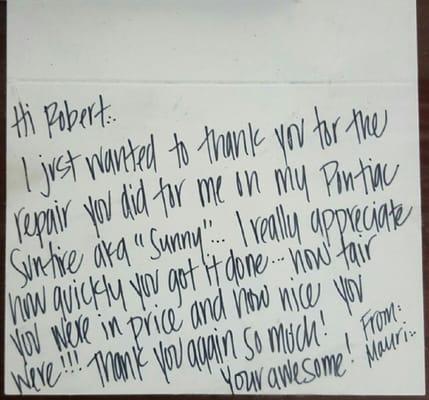 Hi Robert..
I just wanted to thank you for the
repair you did for me on my Pontiac
Sunfire aka "Sunny"... I really appreciate
how quickly you got it done... how fair
you were in price and how nice you
were!!! Thank you again so much!
your awesome!
From:
Mauri..